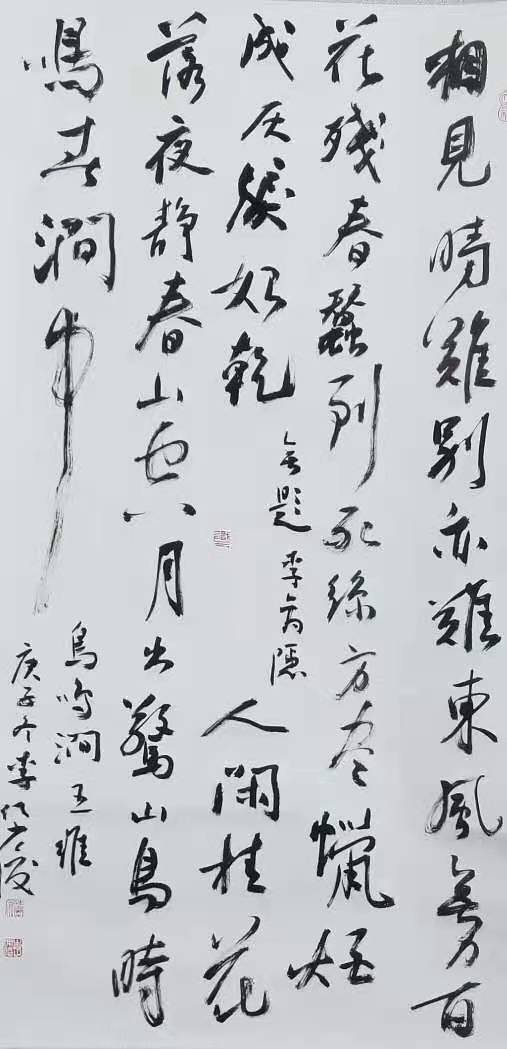 相見時難別亦難東風無力百
花殘春蠶到死絲方盡蠟炬
成灰淚始乾
無題 李商隱
人閑桂花
落夜靜春山空月出驚山鳥時
鳴春澗中
鳥鳴澗王維
庚子冬李